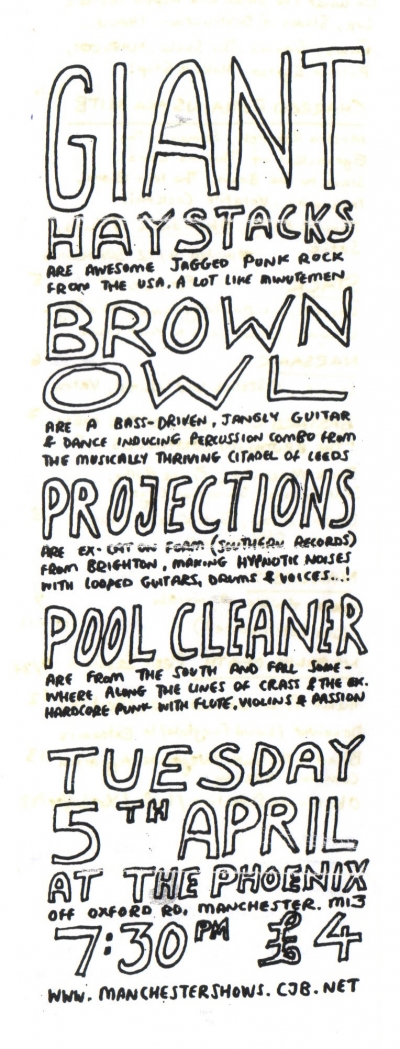 GIANT
HAYSTACKS
ARE AWESOME JAGGED PUNK ROCK
FROM THE USA. A LOT LIKE MINUTEMEN
BROWN
OWL
ARE A BASS-DRIVEN, JANGLY GUITAR
& DANCE INDUCING PERCUSSION COMBO FROM
THE MUSICALLY THRIVING CITADEL OF LEEDS
PROJECTIONS
ARE EX-CAT ON FORM (SOUTHERN RECORDS)
FROM BRIGHTON, MAKING HYPNOTIC NOISES
WITH LOOPED GUITARS, DRUMS & VOICES...!
POOL CLEANER
ARE FROM THE SOUTH AND FALL SOME-
WHERE ALONG THE LINES OF CRASS & THE EX.
HARDCORE PUNK WITH FLUTE, VIOLINS & PASSION
TUESDAY
5TH APRIL
AT THE PHOENIX
OFF OXFORD RD, MANCHESTER. M13
7:30PM £4
WWW.MANCHESTERSHOWS.CJB.NET